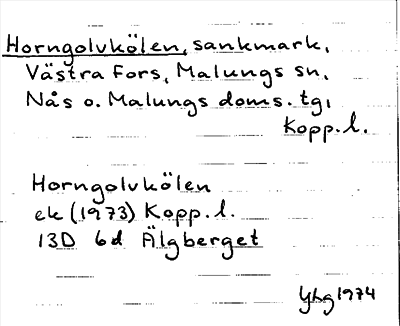 Horngolvkölen, sankmark,
Västra Fors, Malungs sn,
Nås o. Malungs doms. tg,
Kopp. l.
Horngolvkölen
ek (1973) Kopp. l.
13D 6d Älgberget
1974